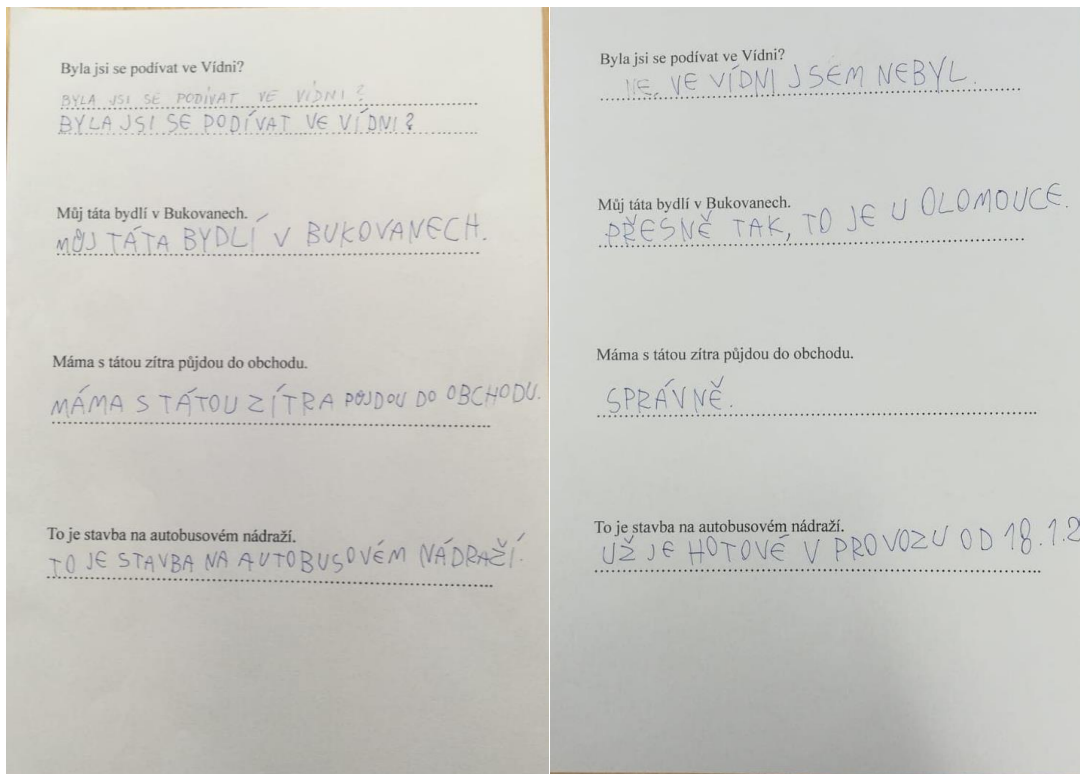 Byla jsi se podívat ve Vídni?
BYLA JSI SE PODÍVAT VE VÍDNI?
BYLA JSI SE PODÍVAT VE VÍDNI?
Můj táta bydlí v Bukovanech.
MŮJ TÁTA BYDLÍ V BUKOVANECH.
Máma s tátou zítra půjdou do obchodu.
MÁMA S TÁTOU ZÍTRA PŮJDOU DO OBCHODU.
To je stavba na autobusovém nádraží.
TO JE STAVBA NA AUTOBUSOVÉM NÁDRAŽÍ.
Byla jsi se podívat ve Vídni?
NE, VE VÍDNI JSEM NEBYL.
Můj táta bydlí v Bukovanech.
PŘESNĚ TAK, TO JE U OLOMOUCE.
Máma s tátou zítra půjdou do obchodu.
SPRÁVNĚ.
To je stavba na autobusovém nádraží.
UŽ JE HOTOVÉ V PROVOZU OD 18.1.2